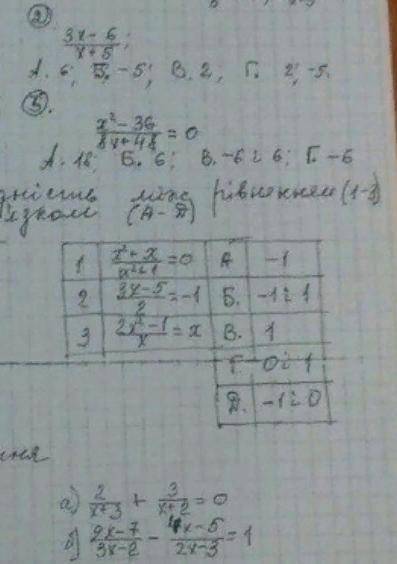 2
3x - 6 / x + 5 ;
А. 6; Б. -5; В. 2; Г. 2; -5.
3.
x² - 36 / 8x + 48 = 0
А. 18; Б. 6; В. -6 і 6; Г. -6
дність між рівнянням (1-3)
(А-Д)
1 | x² + x / x² + 1 = 0 | А | -1
2 | 3x - 5 / 2 = -1 | Б. | -1 і 1
3 | 2x² - 1 / x = x | В. | 1
Г. | 0 і 1
Д. | -1 і 0
ння
а) 2 / x + 3 + 3 / x + 2 = 0
б) 2x - 7 / 3x - 2 - 4x - 5 / 2x - 3 = 1